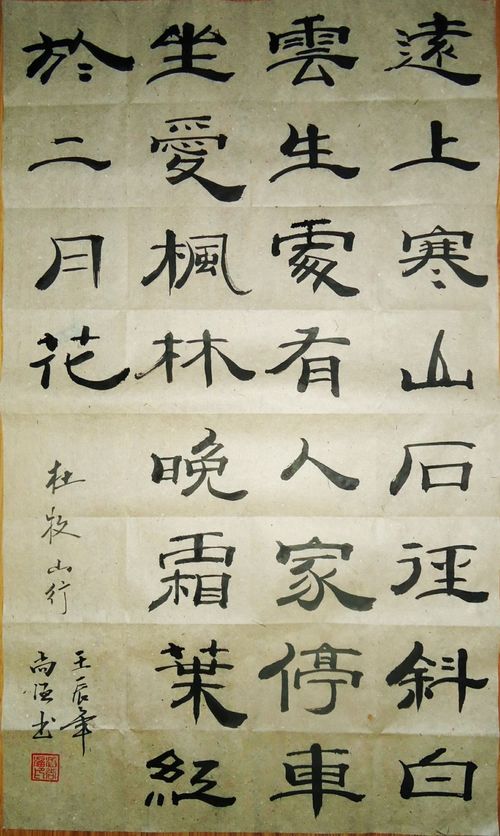 遠上寒山石徑斜白
雲生處有人家停車
坐愛楓林晚霜葉紅
於二月花
杜牧山行
壬辰年
尚恒书